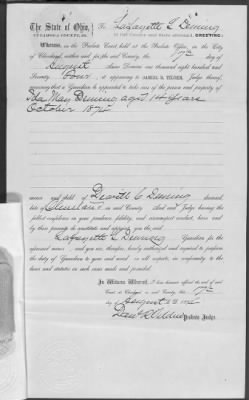 The State of Ohio,
CUYAHOGA COUNTY, SS.
To Lafayette C Deming
of said County and State aforesaid, GREETING:
Whereas, in the Probate Court held at the Probate Office, in the City
of Cleveland, within and for the said County, on the 17th day of
August Anno Domini one thousand eight hundred and
Seventy Four, it appearing to DANIEL R. TILDEN, Judge thereof,
that a Guardian be appointed to take care of the person and property of
Ida May Deming aged 14 years
October 1874
minor and child of C Deming deceased,
late of in said County. And said Judge having the
fullest confidence in your prudence, fidelity, and circumspect conduct, have and
by these presents do constitute and appoint you, the said
Lafayette C Deming Guardian for the
aforesaid minor and you are, therefore, hereby authorized and required to perform
the duty of Guardian to you and ward in all respects, in conformity to the
laws and statutes in such cases made and provided.
In Witness Whereof, I have hereunto affixed the seal of said
Court at Cleveland in said County, this 17th
day of August A.D. 1874
Dan R Tilden
Probate Judge.